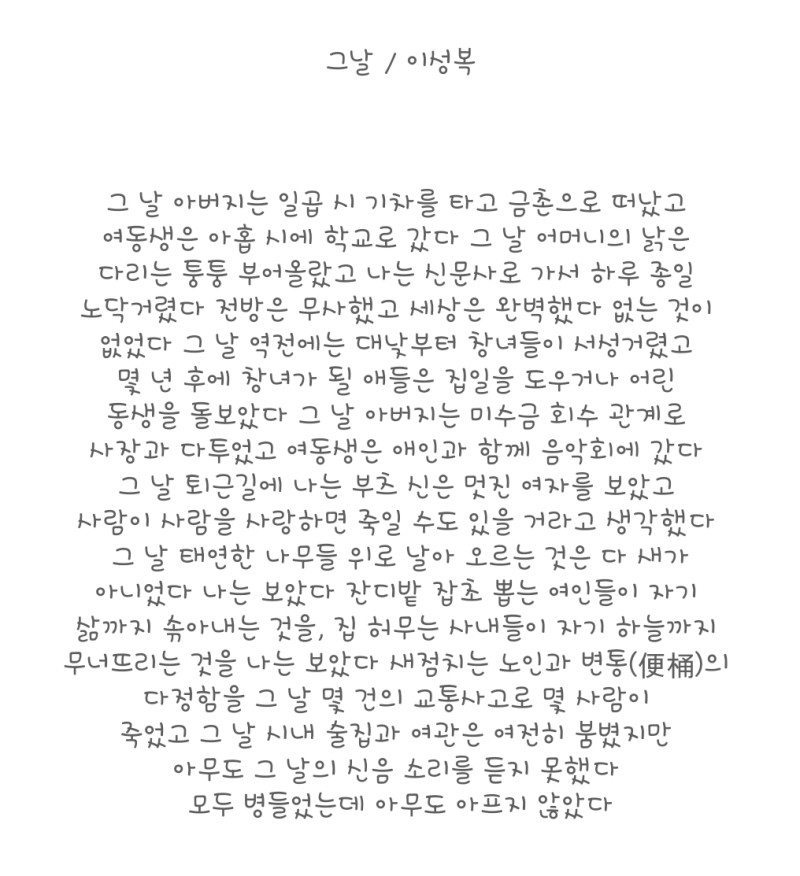 그날 / 이성복
그 날 아버지는 일곱 시 기차를 타고 금촌으로 떠났고
여동생은 아홉 시에 학교로 갔다 그 날 어머니의 낡은
다리는 퉁퉁 부어올랐고 나는 신문사로 가서 하루 종일
노닥거렸다 전방은 무사했고 세상은 완벽했다 없는 것이
없었다 그 날 역전에는 대낮부터 창녀들이 서성거렸고
몇 년 후에 창녀가 될 애들은 집일을 도우거나 어린
동생을 돌보았다 그 날 아버지는 미수금 회수 관계로
사장과 다투었고 여동생은 애인과 함께 음악회에 갔다
그 날 퇴근길에 나는 부츠 신은 멋진 여자를 보았고
사람이 사람을 사랑하면 죽일 수도 있을 거라고 생각했다
그 날 태연한 나무들 위로 날아 오르는 것은 다 새가
아니었다 나는 보았다 잔디밭 잡초 뽑는 여인들이 자기
삶까지 솎아내는 것을, 집 허무는 사내들이 자기 하늘까지
무너뜨리는 것을 나는 보았다 새점치는 노인과 변통(便桶)의
다정함을 그 날 몇 건의 교통사고로 몇 사람이
죽었고 그 날 시내 술집과 여관은 여전히 붐볐지만
아무도 그 날의 신음 소리를 듣지 못했다
모두 병들었는데 아무도 아프지 않았다